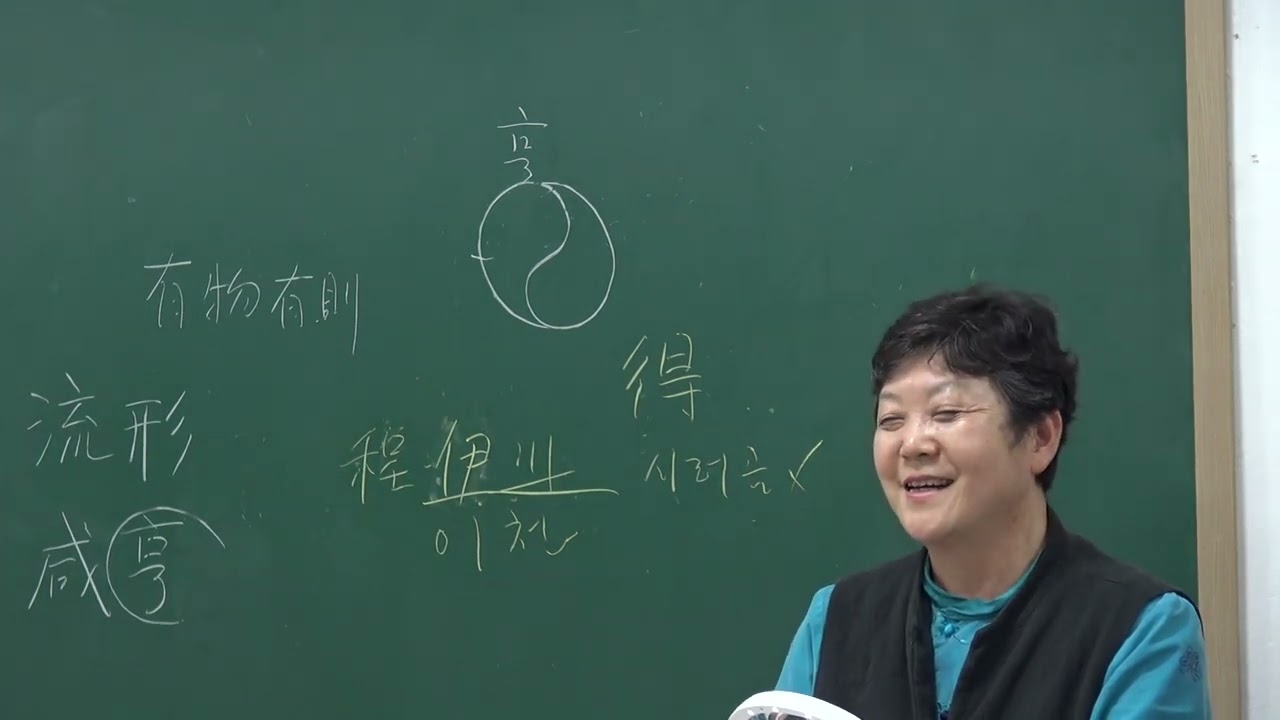 亨
有物有則
流形
得
程伊川
시러금
이천
咸亨